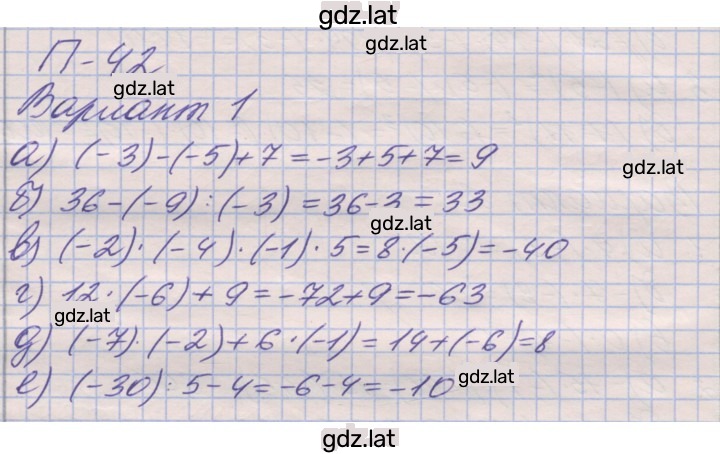 gdz.lat
gdz.lat
П-42
gdz.lat
Вариант 1
а) (-3)-(-5)+7=-3+5+7=9
gdz.lat
б) 36-(-9):(-3)=36-3=33
gdz.lat
в) (-2)·(-4)·(-1)·5=8·(-5)=-40
г) 12·(-6)+9=-72+9=-63
gdz.lat
д) (-7)·(-2)+6·(-1)=14+(-6)=8
е) (-30):5-4=-6-4=-10
gdz.lat
gdz.lat